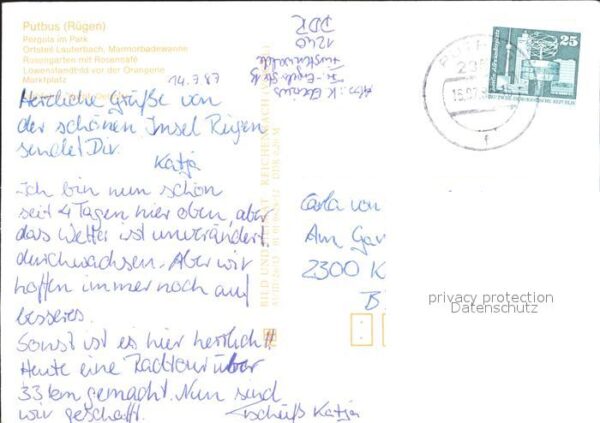 Putbus (Rügen)
Pergola im Park
Ortsteil Lauterbach, Marmorbadewanne
Rosengarten mit Rosencafé
Löwenstandbild vor der Orangerie
Marktplatz
14.7.87
Herzliche Grüße von
der schönen Insel Rügen
sendet Dir
Katja
Ich bin nun schon
seit 4 Tagen hier oben, aber
das Wetter ist unverändert
durchwachsen. Aber wir
hoffen immer noch auf
besseres.
Sonst ist es hier herrlich!!
Heute eine Radtour über
33 km gemacht. Nun sind
wir geschafft. Tschüß Katja
BILD UND HEIMAT REICHENBACH
Abs.: K
Fürstenwalde
1240
DDR
25
PUTBUS
Carla von
Am Gar
2300 K
B
privacy protection
Datenschutz